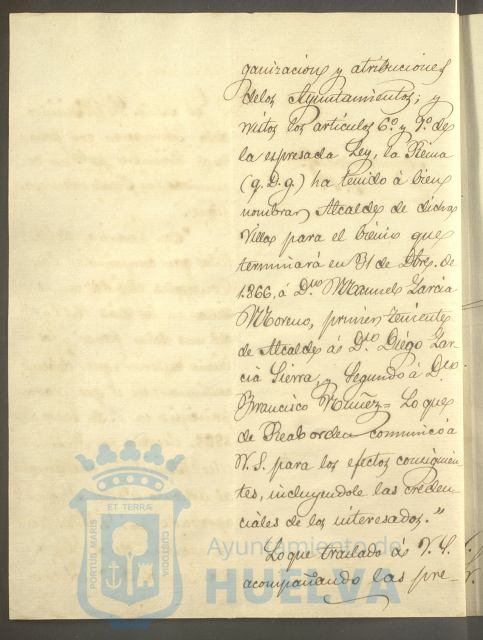 ganizacion y atribuciones
delos Ayuntamientos; y
vistos los artículos 6º y 9º de
la espresada Ley, la Reina
(q. D. g.) ha tenido á bien
nombrar Alcalde de dicha
Villa para el bienio que
terminará en 31 de Dbre. de
1.866, á Dn. Manuel Garcia
Moreno, primer teniente
de Alcalde á Dn. Diego Gar-
cia Sierra, y Segundo á Dn.
Francisco Nuñez= Lo que
de Real orden comunico á
V. S. para los efectos consiguien-
tes, incluyendole las creden-
ciales de los interesados."
Lo que traslado á V. S.
acompañando las pre-
PORTUS MARIS ET TERRÆ CUSTODIA
Ayuntamiento de
HUELVA